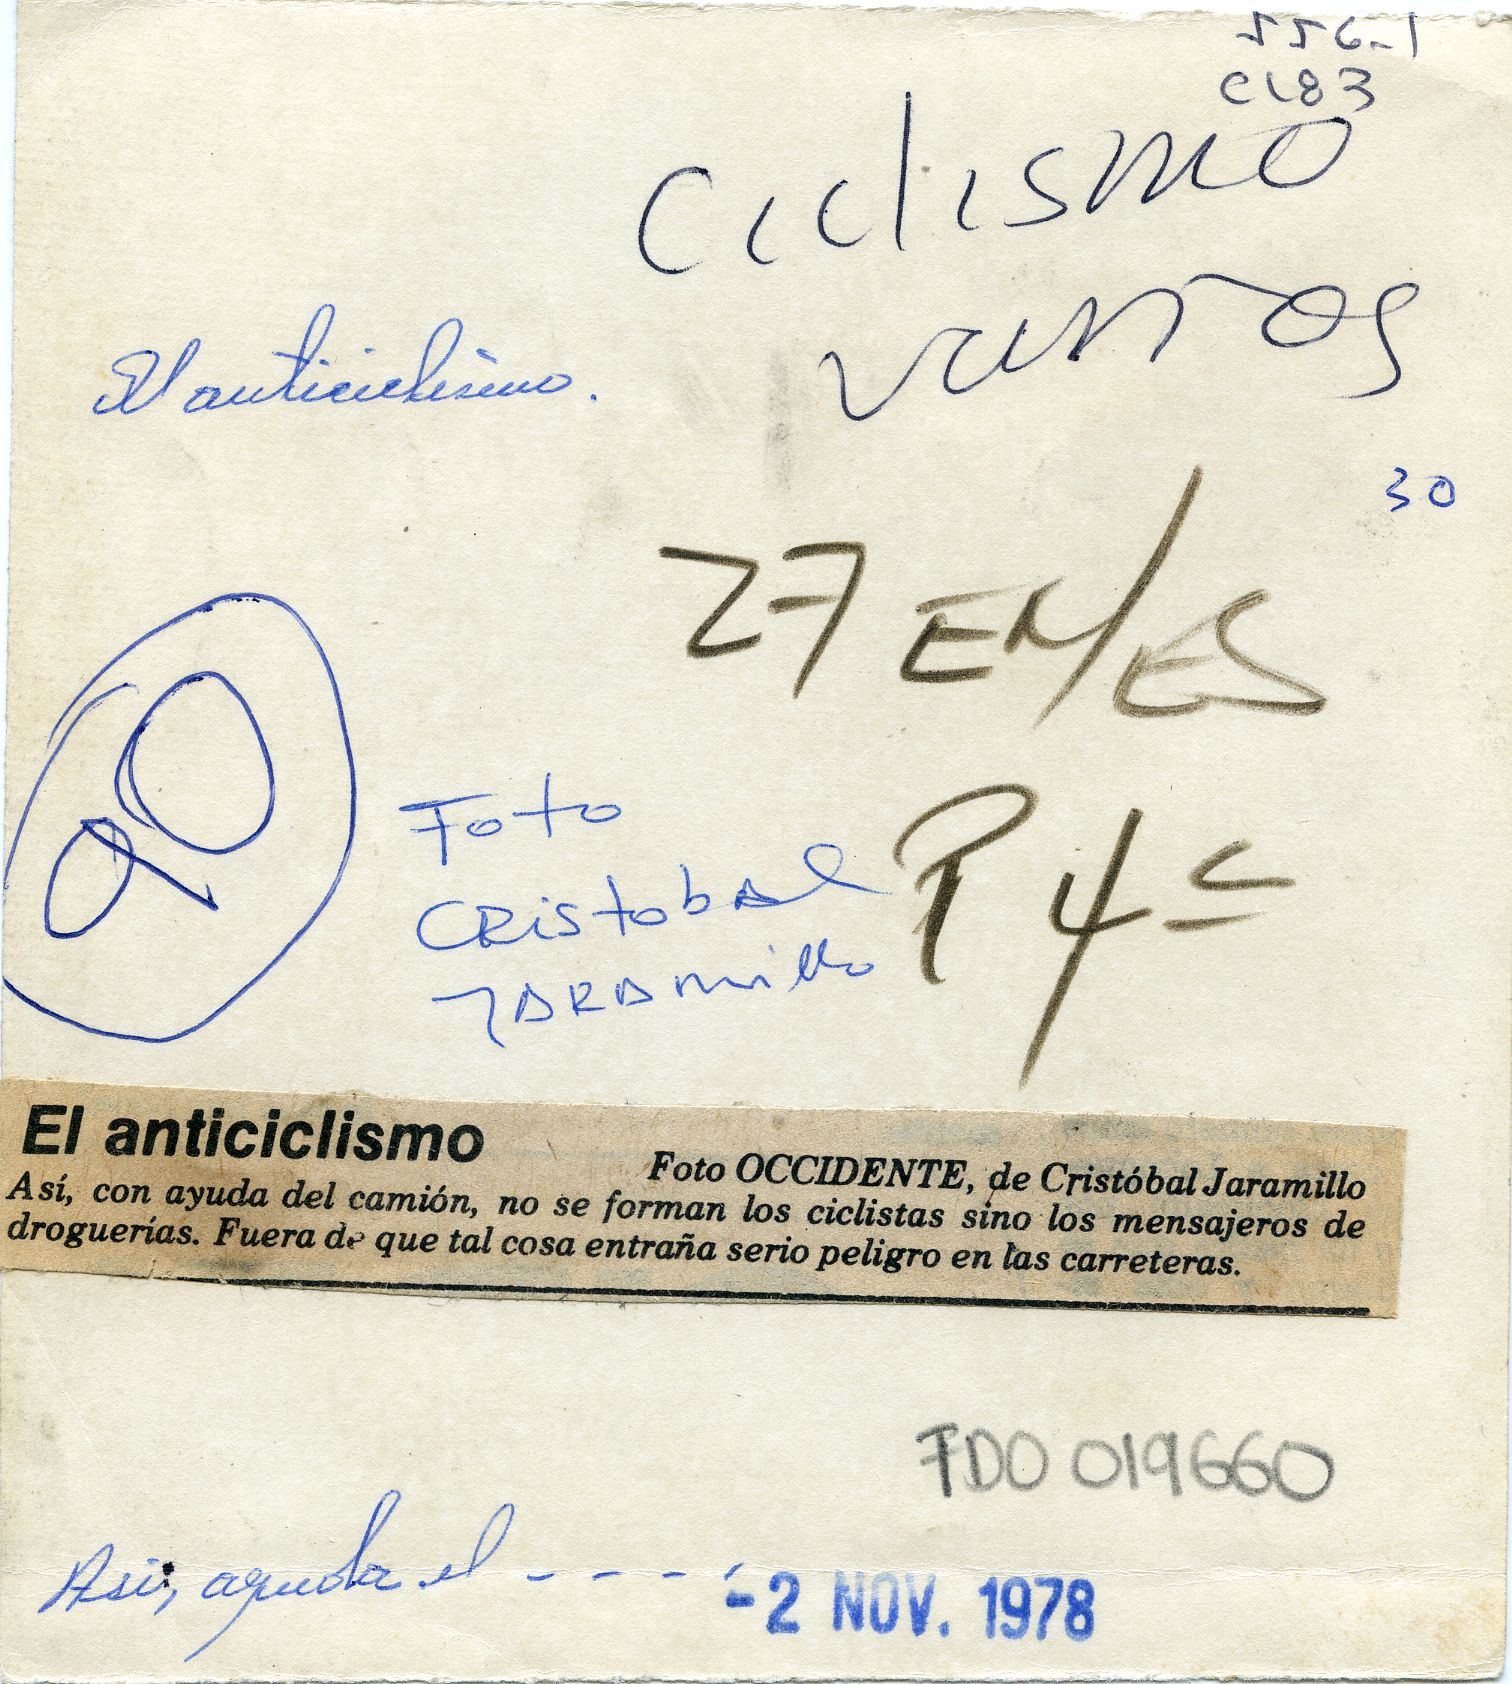 556-1
CL83
Ciclismo
varios
El anticiclismo.
30
27 EM/ES
Foto
CRistobal
JARAmillo
P 4
El anticiclismo
Foto OCCIDENTE, de Cristóbal Jaramillo
Así, con ayuda del camión, no se forman los ciclistas sino los mensajeros de
droguerías. Fuera de que tal cosa entraña serio peligro en las carreteras.
FDO 019660
Asi, ayuda el - - - -
-2 NOV. 1978